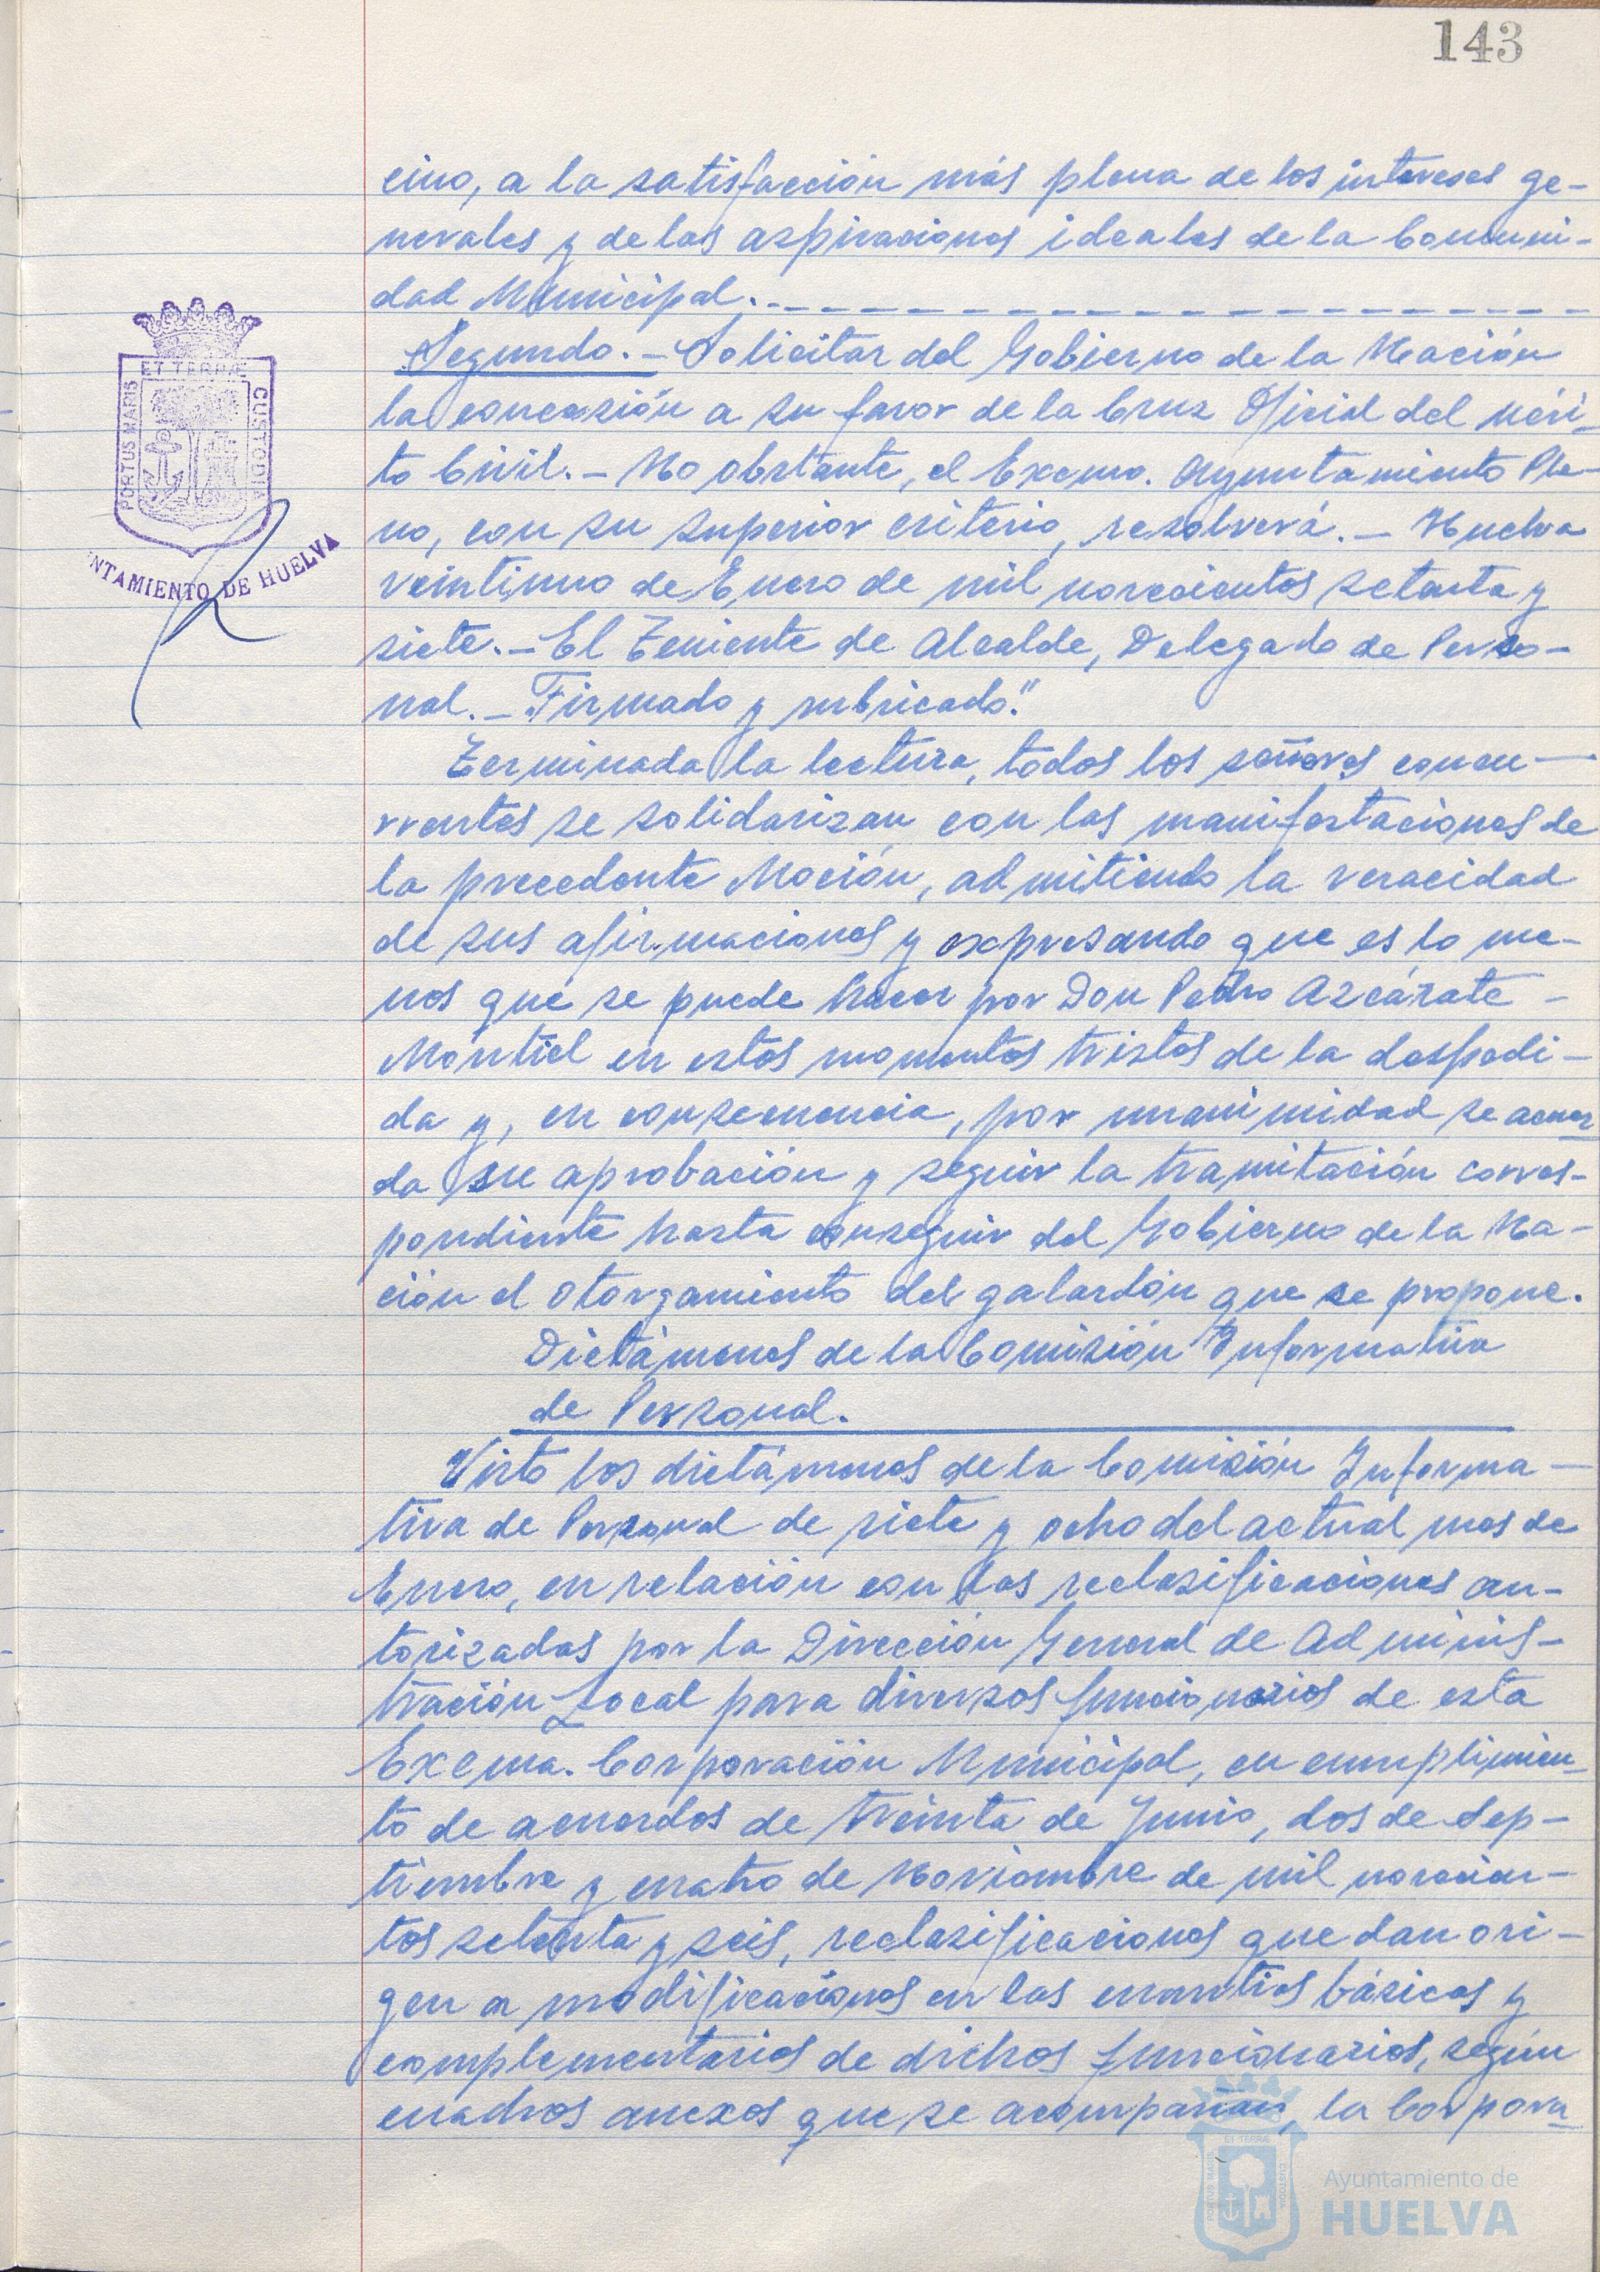 143
cino, a la satisfacción más plena de los intereses ge-
nerales y de las aspiraciones ideales de la Comuni-
dad Municipal.-
Segundo.- Solicitar del Gobierno de la Nación
la concesión a su favor de la Cruz Oficial del Méri-
to Civil.- No obstante, el Excmo. Ayuntamiento Ple-
no, con su superior criterio, resolverá.- Huelva
veintiuno de Enero de mil novecientos setenta y
siete.- El Teniente de Alcalde, Delegado de Perso-
nal.- Firmado y rubricado."
Terminada la lectura, todos los señores concu-
rrentes se solidarizan con las manifestaciones de
la precedente Moción, admitiendo la veracidad
de sus afirmaciones y expresando que es lo me-
nos que se puede hacer por Don Pedro Azcárate
Montiel en estos momentos tristes de la despedi-
da y, en consecuencia, por unanimidad se acuer-
da su aprobación y seguir la tramitación corres-
pondiente hasta conseguir del Gobierno de la Na-
ción el otorgamiento del galardón que se propone.
Dictámenes de la Comisión Informativa
de Personal.
Visto los dictámenes de la Comisión Informa-
tiva de Personal de siete y ocho del actual mes de
Enero, en relación con las reclasificaciones au-
torizadas por la Dirección General de Adminis-
tración Local para diversos funcionarios de esta
Excma. Corporación Municipal, en cumplimien-
to de acuerdos de treinta de Junio, dos de Sep-
tiembre y cuatro de Noviembre de mil novecien-
tos setenta y seis, reclasificaciones que dan ori-
gen a modificaciones en las cuantías básicas y
complementarios de dichos funcionarios, según
cuadros anexos que se acompañan, la Corpora-
PORTUS MARIS ET TERRÆ CUSTODIA
NTAMIENTO DE HUELVA
Ayuntamiento de
HUELVA